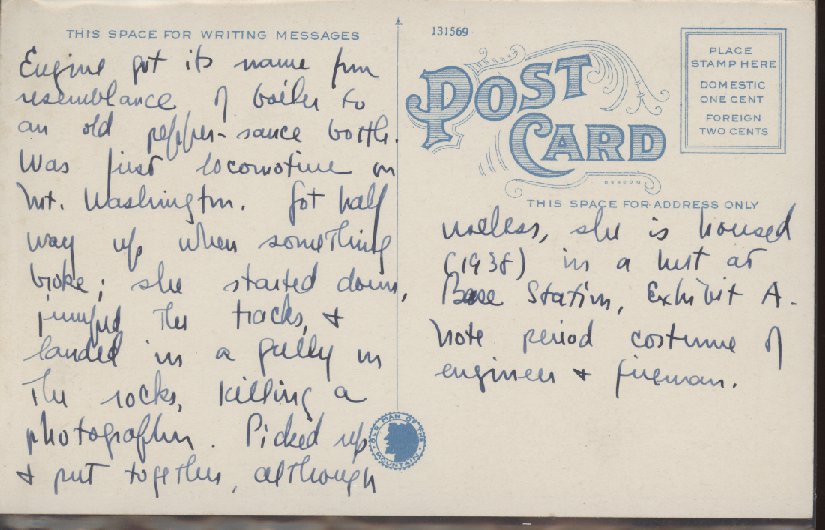 THIS SPACE FOR WRITING MESSAGES
Engine got its name from
resemblance of boiler to
an old pepper-sauce bottle.
Was first locomotive on
Mt. Washington. Got half
way up when something
broke; she started down,
jumped the tracks, &
landed in a gully in
the rocks, killing a
photographer. Picked up
& put together, although
131569
POST
CARD
PLACE
STAMP HERE
DOMESTIC
ONE CENT
FOREIGN
TWO CENTS
THIS SPACE FOR ADDRESS ONLY
useless, she is housed
(1938) in a hut at
Base Station, Exhibit A.
Note period costume of
engineer & fireman.
OLD MAN OF THE
MOUNTAIN